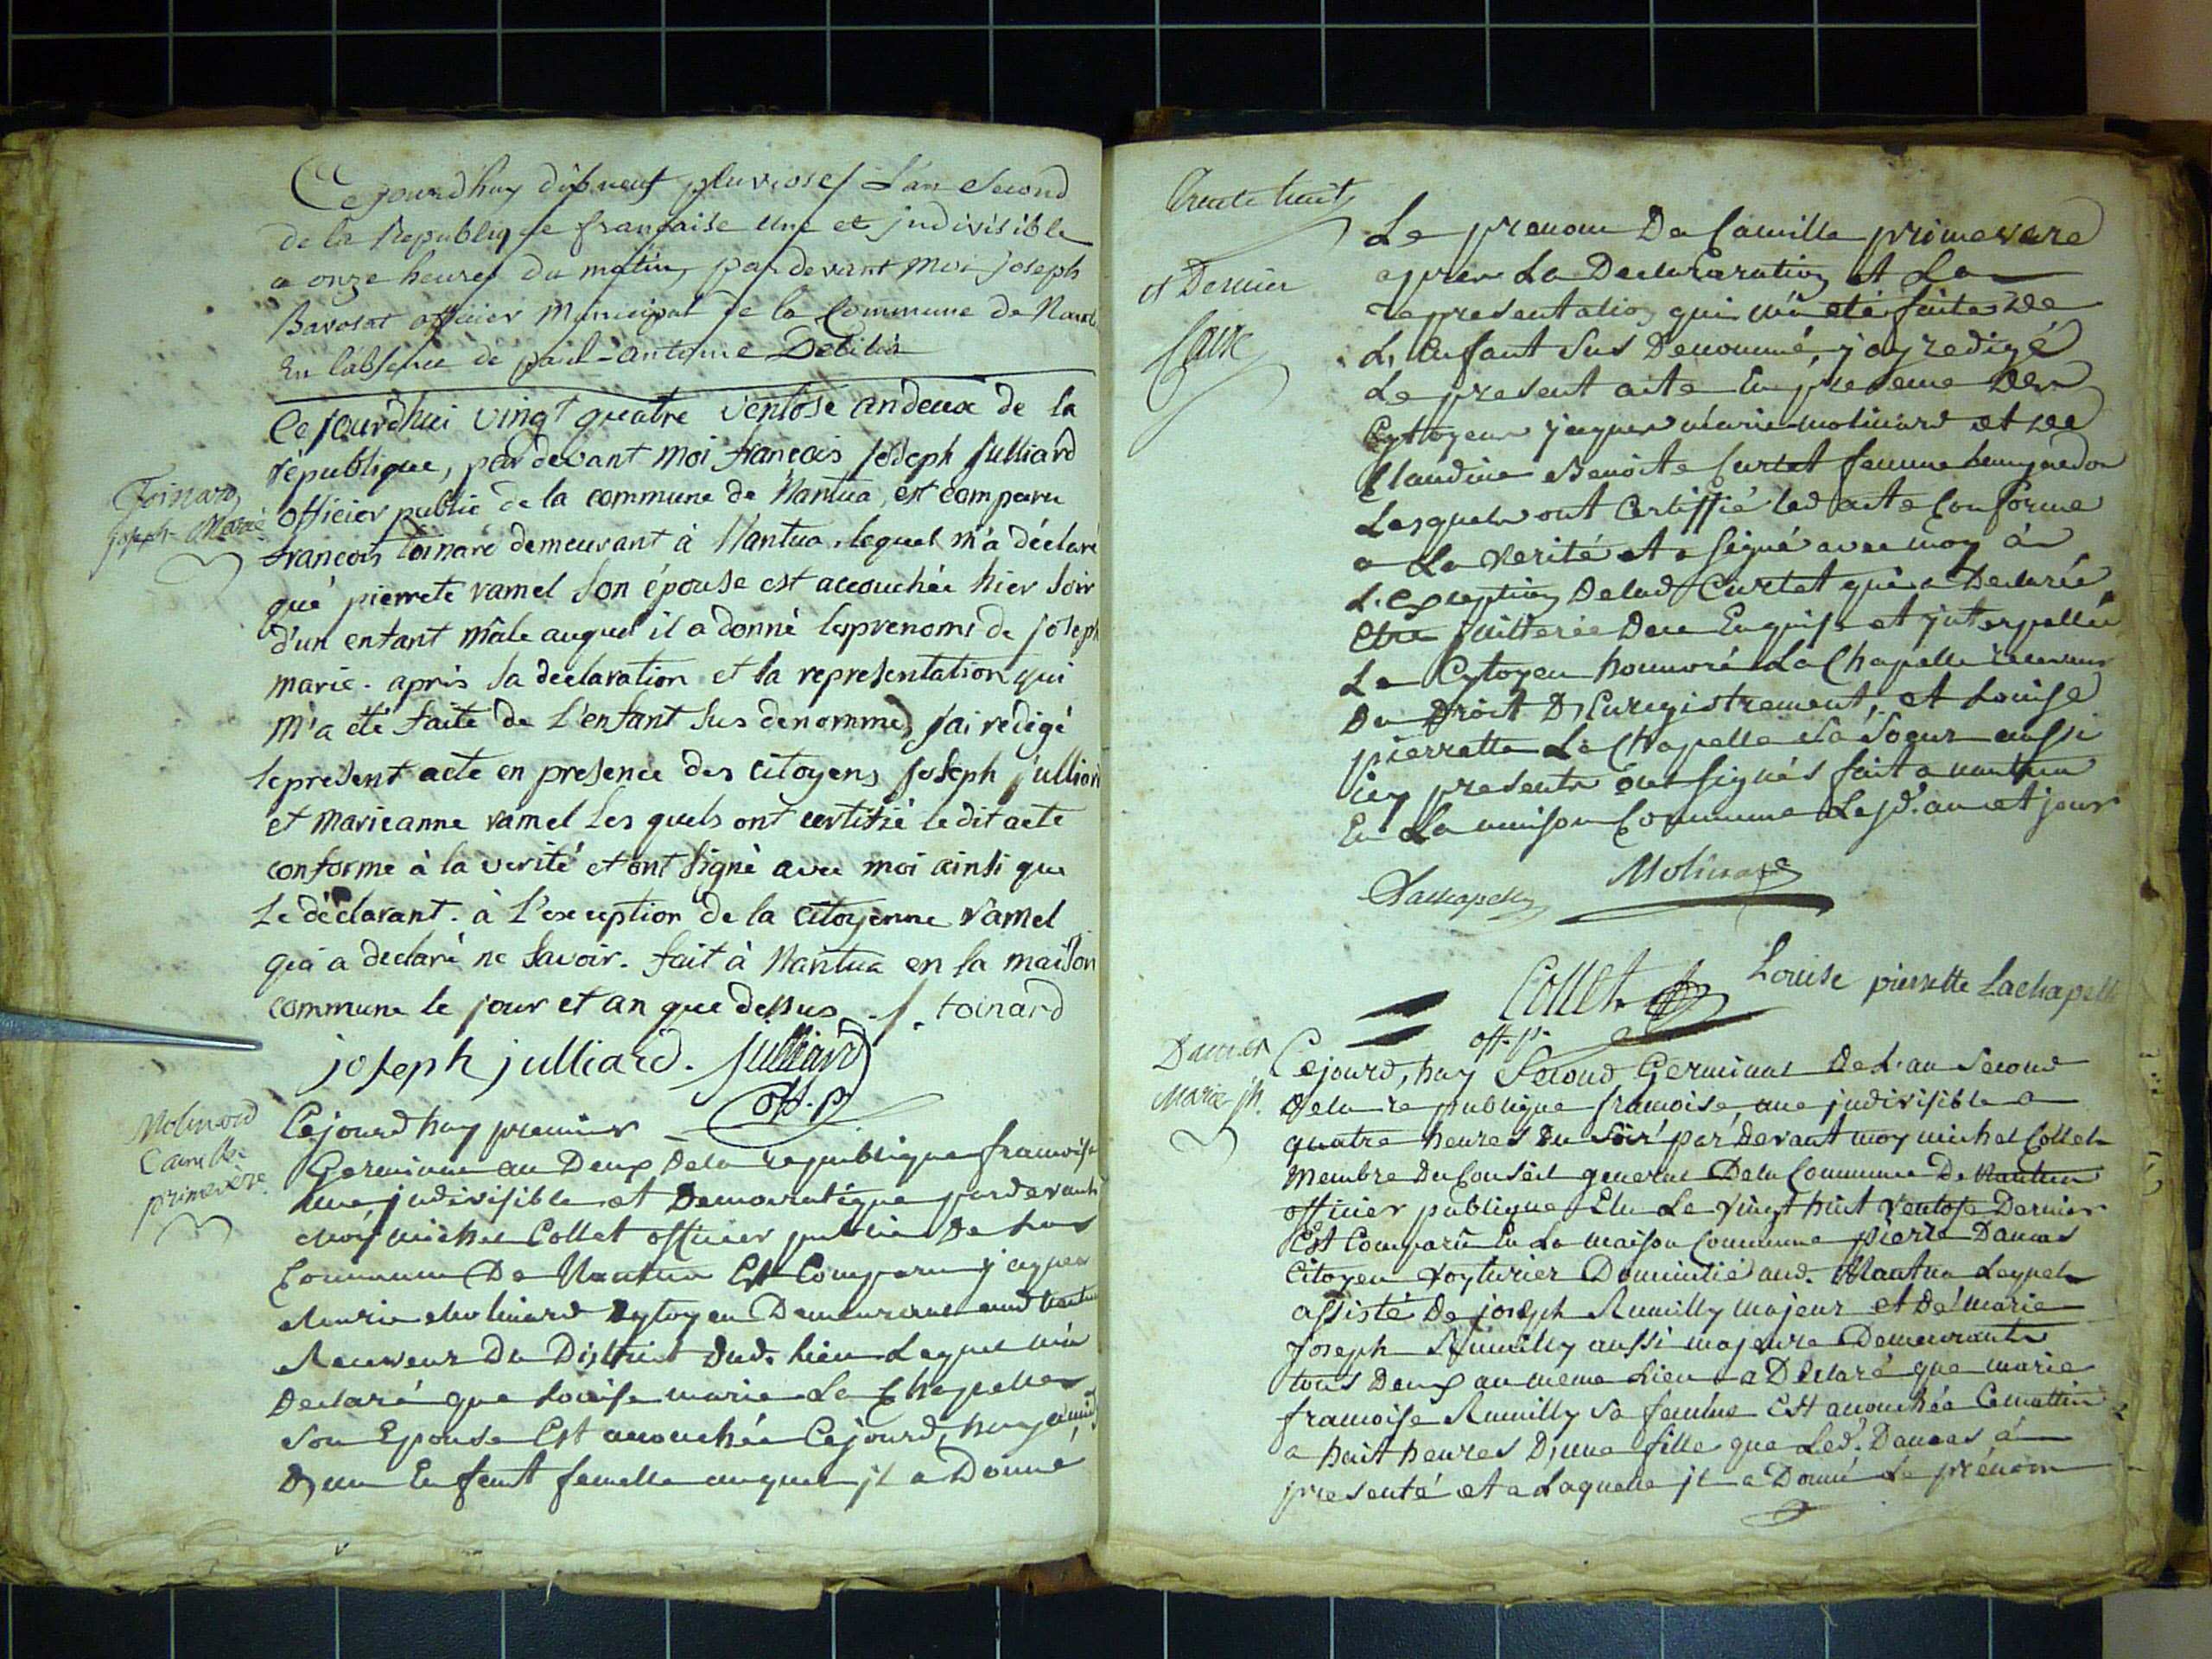 Cejourdhuy dixneuf pluviose L'an Second
de la Republique française une et indivisible
a onze heures du matin, pardevant Moi joseph
Bavosat officier Municipal de la Commune de Nant
En l'absence de paul-antoine Debilis
Toinard
joseph-Marie
Ce jourd'hui vingt quatre ventose an deux de la
république, par devant moi francois joseph julliard
officier public de la commune de Nantua, est comparu
francois toinard demeurant à Nantua, lequel m'a déclaré
que pierrete ramel son épouse est accouchée hier soir
d'un enfant mâle auquel il a donné les prenoms de joseph
marie. après la declaration et la representation qui
m'a été faite de l'enfant sus denommé, j'ai redigé
le present acte en presence des citoyens joseph julliard
et marieanne ramel Les quels ont certifié le dit acte
conforme à la verité et ont signé avec moi ainsi que
Le déclarant. à l'exception de la citoyenne ramel
qui a declaré ne savoir. fait à Nantua en la maison
commune le jour et an que dessus. f. toinard
joseph julliard. julliard
off. p.
Molinard
Camille
primevère
Cejourdhuy premier
Germinal an Deux Dela republique francoise
une, judivisible et Democratique pardevant
moy michel Collet officier public De la
Commune De Nantua Est Comparu jaques
Marie Molinard Cytoyen Demeurant aud Nantua
Receveur Du District dud. lieu Lequel m'a
Declaré que Louise marie La Chapelle
Son Epouse Est accouchée Cejourd,huy a midi
D,un Enfant femelle auquel jl a Donné
Trente huit
et Dernier
Caire
Le prenom De Camille primevere
apres La Declararation et La
representation qui m'a eté faites De
L,Enfant Sus Denommé, j'ay redigé
Le present acte En presence Des
Cytoyens jaques marie molinard et de
Claudine Benoite Curtet femme
Lesquels ont Certiffié led acte Conforme
a La Verité et a Signé avec moy à
L.exception Delad Curtet qui a Declarée
Etre jllitterée Dece Enquise et jnterpellée
Le Cytoyen honnoré La Chapelle receveur
Du Droit D,Enregistrement, et Louise
pierrette La Chapelle Sa Soeur aussi
icy presents ont Signés fait a nantua
En La maison Commune Lesd. an et jour
Lachapelle
Molinard
Collet
off. p.
Louise pierrette Lachapelle
Damas
Marie jh.
Cejourd,huy Second Germinal De L'an Second
Dela republique francoise, une judivisible a
quatre heures Du Soir par Devant moy michel Collet
Membre Du Conseil general Dela Commune De Nantua
officier publique Elu Le Vingt huit Ventose Dernier
Est Comparu En La maison Commune pierre Damas
Citoyen Voyturier Domicilié aud. Nantua Lequel
assisté De joseph Rumilly majeur et De Marie
joseph Rumilly aussi majeure Demeurants
tous Deux au meme Lieu a Declaré que marie
francoise Rumilly Sa femme Est accouchée Cemattin
a huit heures D,une fille que Led. Damas à
presenté et a Laquelle jl a Donné Le prénom